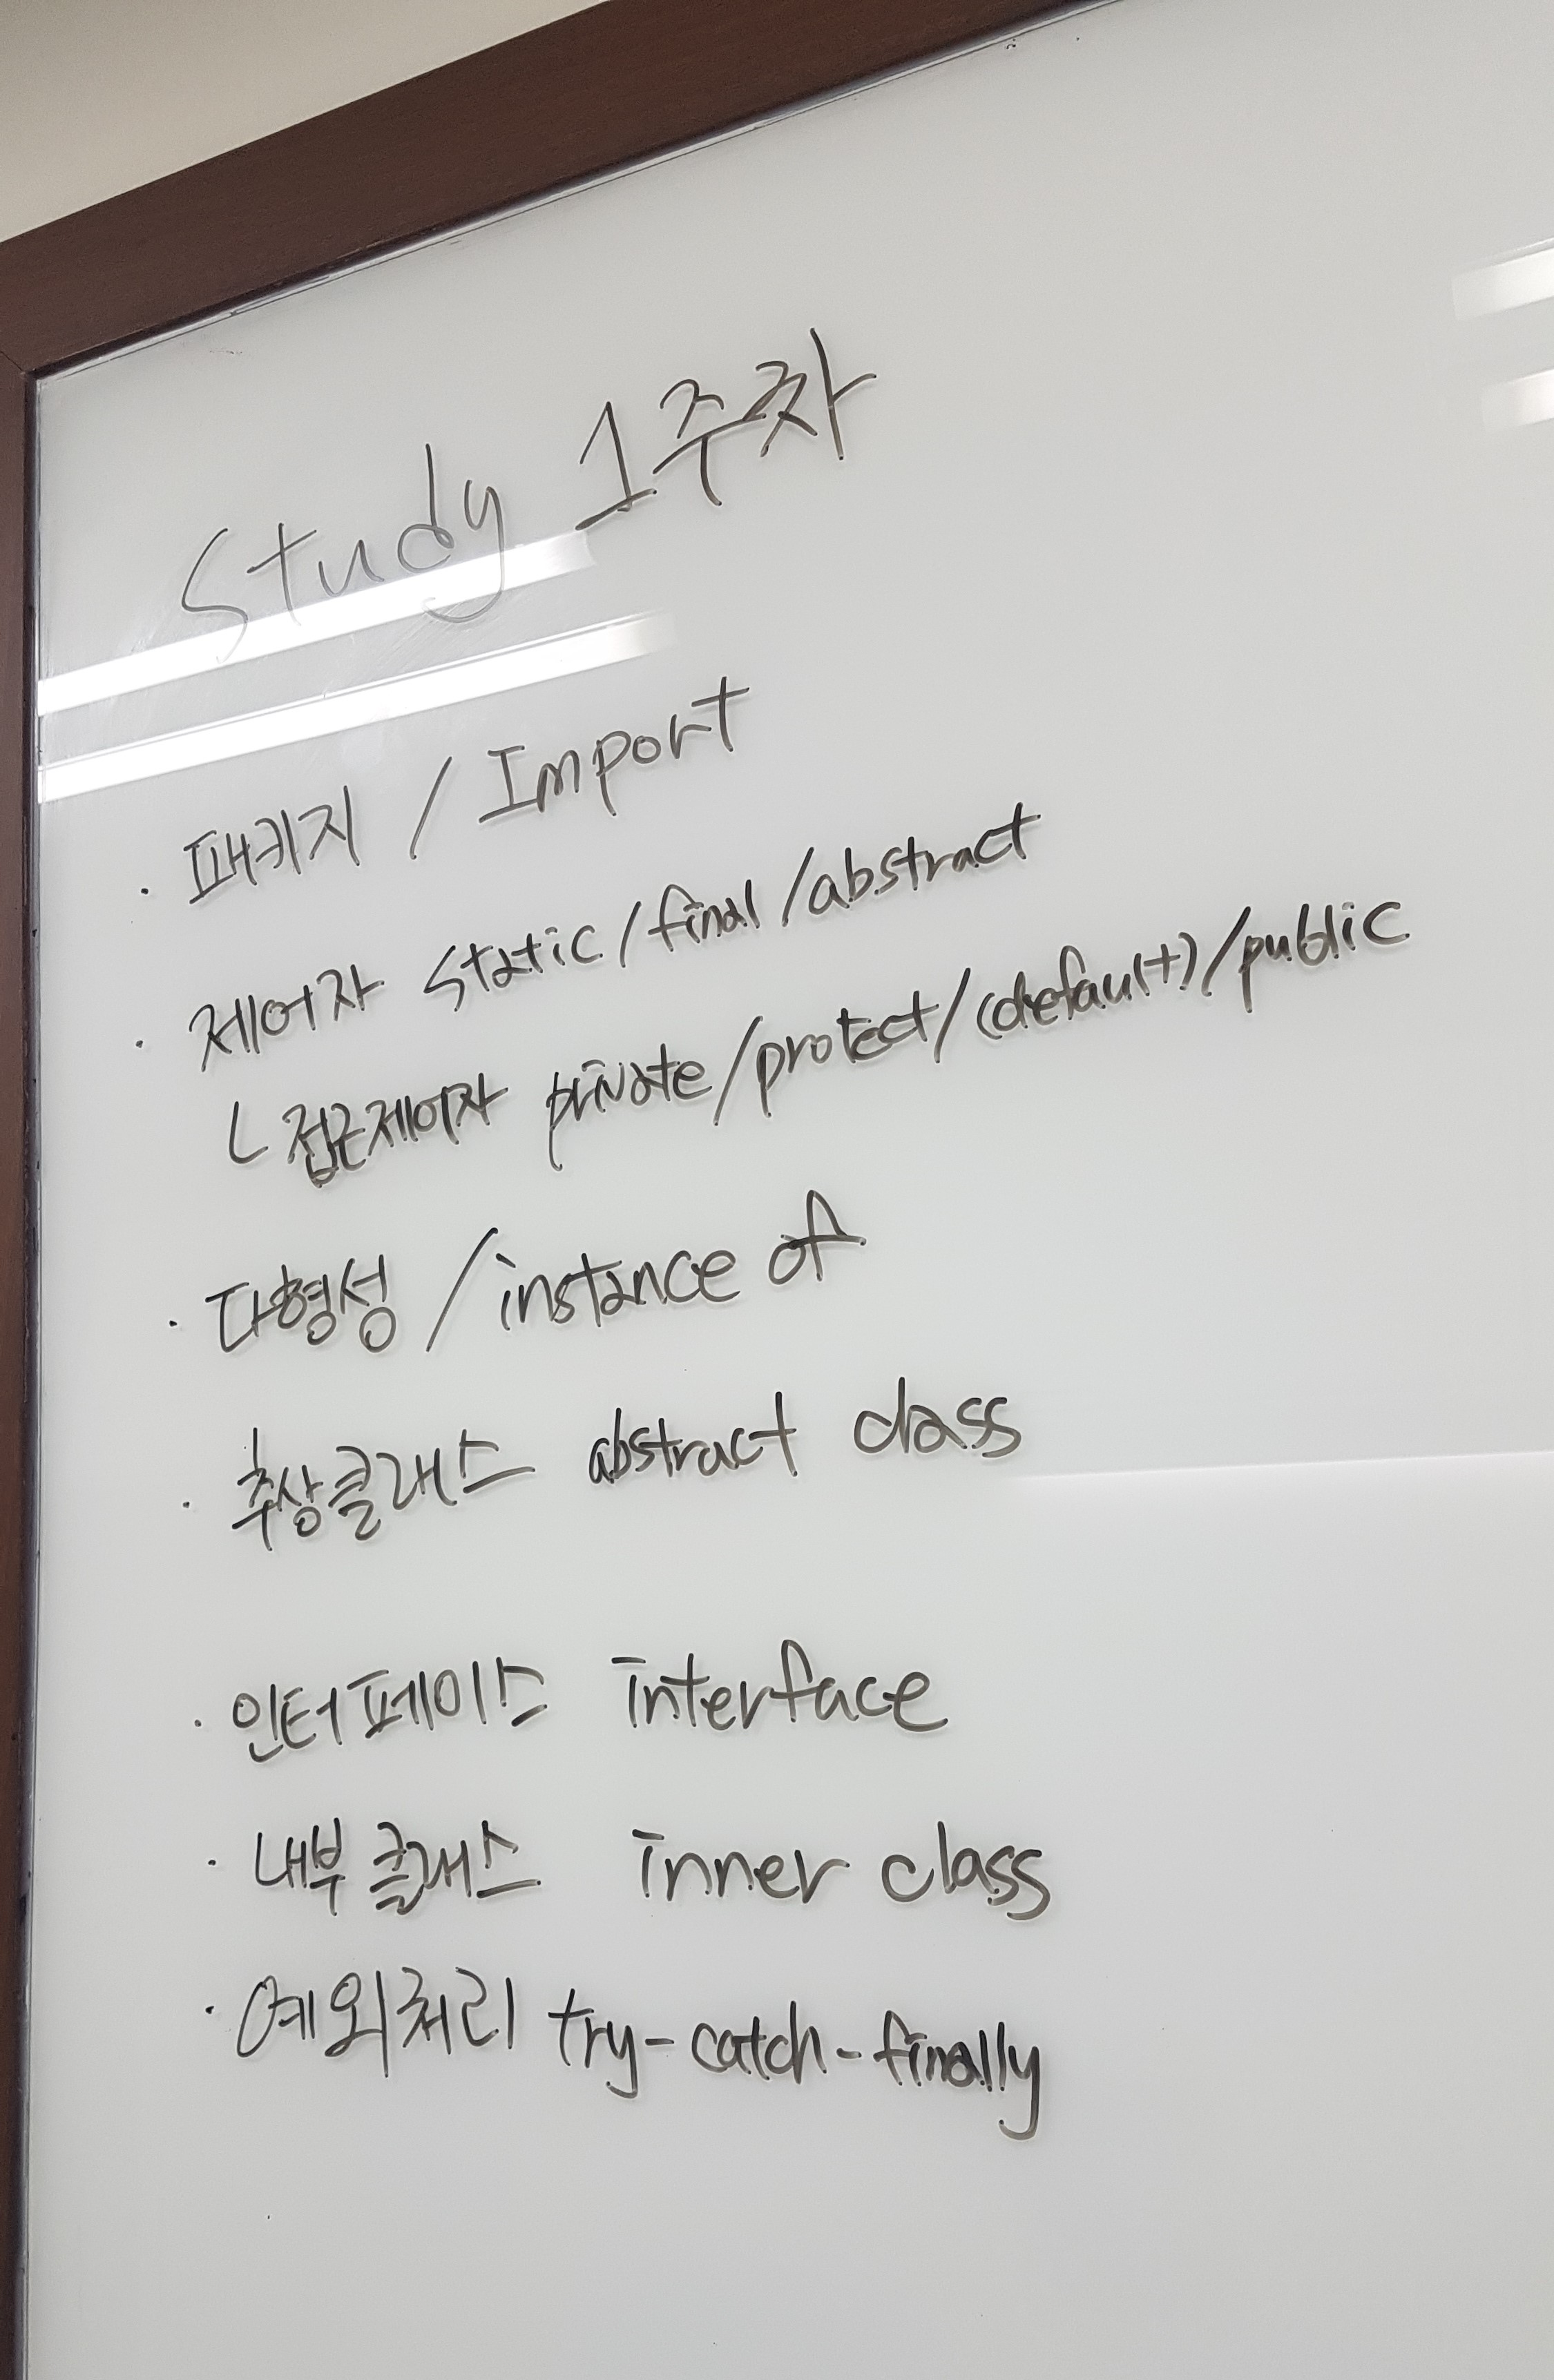 Study 1주차
· 패키지 / Import
· 제어자 static/final/abstract
ㄴ 접근제어자 private/protect/(default)/public
· 다형성 / instance of
· 추상클래스 abstract class
· 인터페이스 interface
· 내부 클래스 inner class
· 예외처리 try-catch-finally